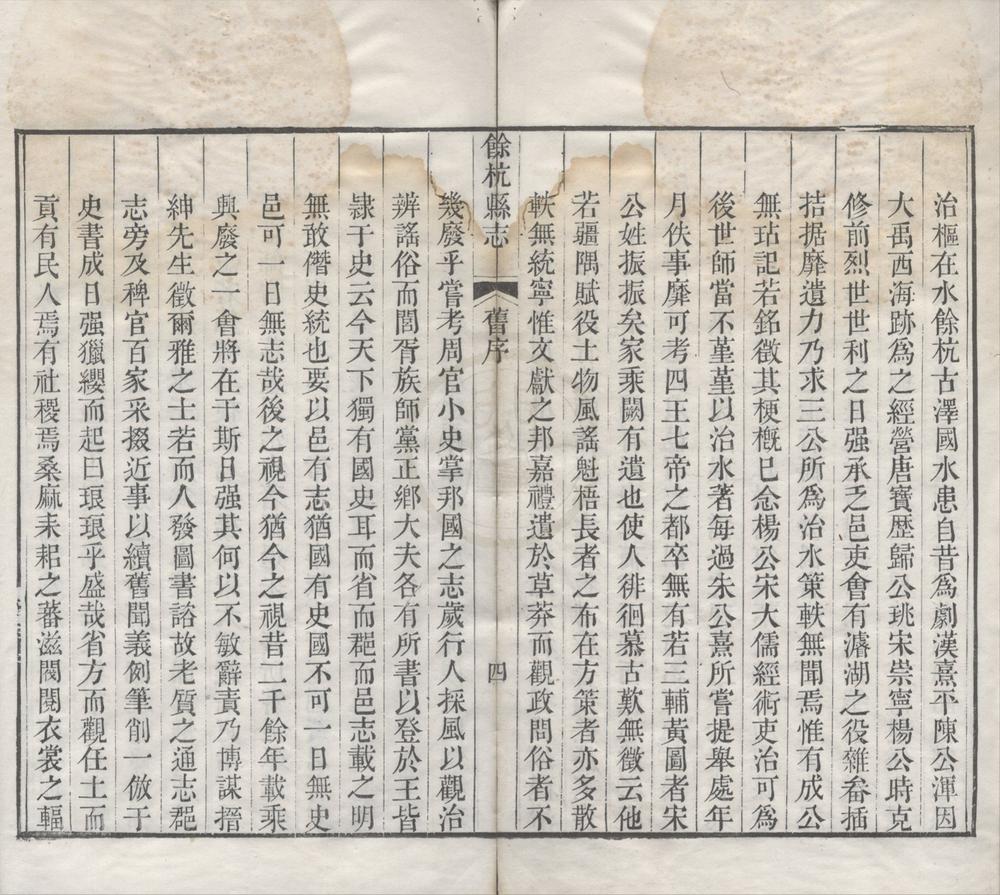 治樞在水餘杭古澤國水患自昔爲劇漢熹平陳公渾因
大禹西海跡爲之經營唐寶歷歸公珧宋崇寧楊公時克
修前烈世世利之日强承乏邑吏會有濬湖之役雜畚插
拮据靡遺力乃求三公所爲治水策軼無聞焉惟有成公
無玷記若銘徵其梗槪已念楊公宋大儒經術吏治可爲
後世師當不堇堇以治水著每過朱公熹所嘗提舉處年
月佚事靡可考四王七帝之都卒無有若三輔黃圖者宋
公姓振振矣家乘闕有遺也使人徘徊慕古歎無徵云他
若疆隅賦役土物風謠魁梧長者之布在方策者亦多散
軼無統寧惟文獻之邦嘉禮遺於草莽而觀政問俗者不
餘杭縣志 舊序 四
幾廢乎嘗考周官小史掌邦國之志歲行人採風以觀治
辨謠俗而閭胥族師黨正鄉大夫各有所書以登於王皆
隷于史云今天下獨有國史耳而省而郡而邑志載之明
無敢僭史統也要以邑有志猶國有史國不可一日無史
邑可一日無志哉後之視今猶今之視昔二千餘年載乘
興廢之一會將在于斯日强其何以不敏辭責乃博謀搢
紳先生徵爾雅之士若而人發圖書諮故老質之通志郡
志旁及稗官百家采掇近事以續舊聞義例筆削一倣于
史書成日强獵纓而起曰琅琅乎盛哉省方而觀任土而
貢有民人焉有社稷焉桑麻耒耜之蕃滋閥閱衣裳之輻